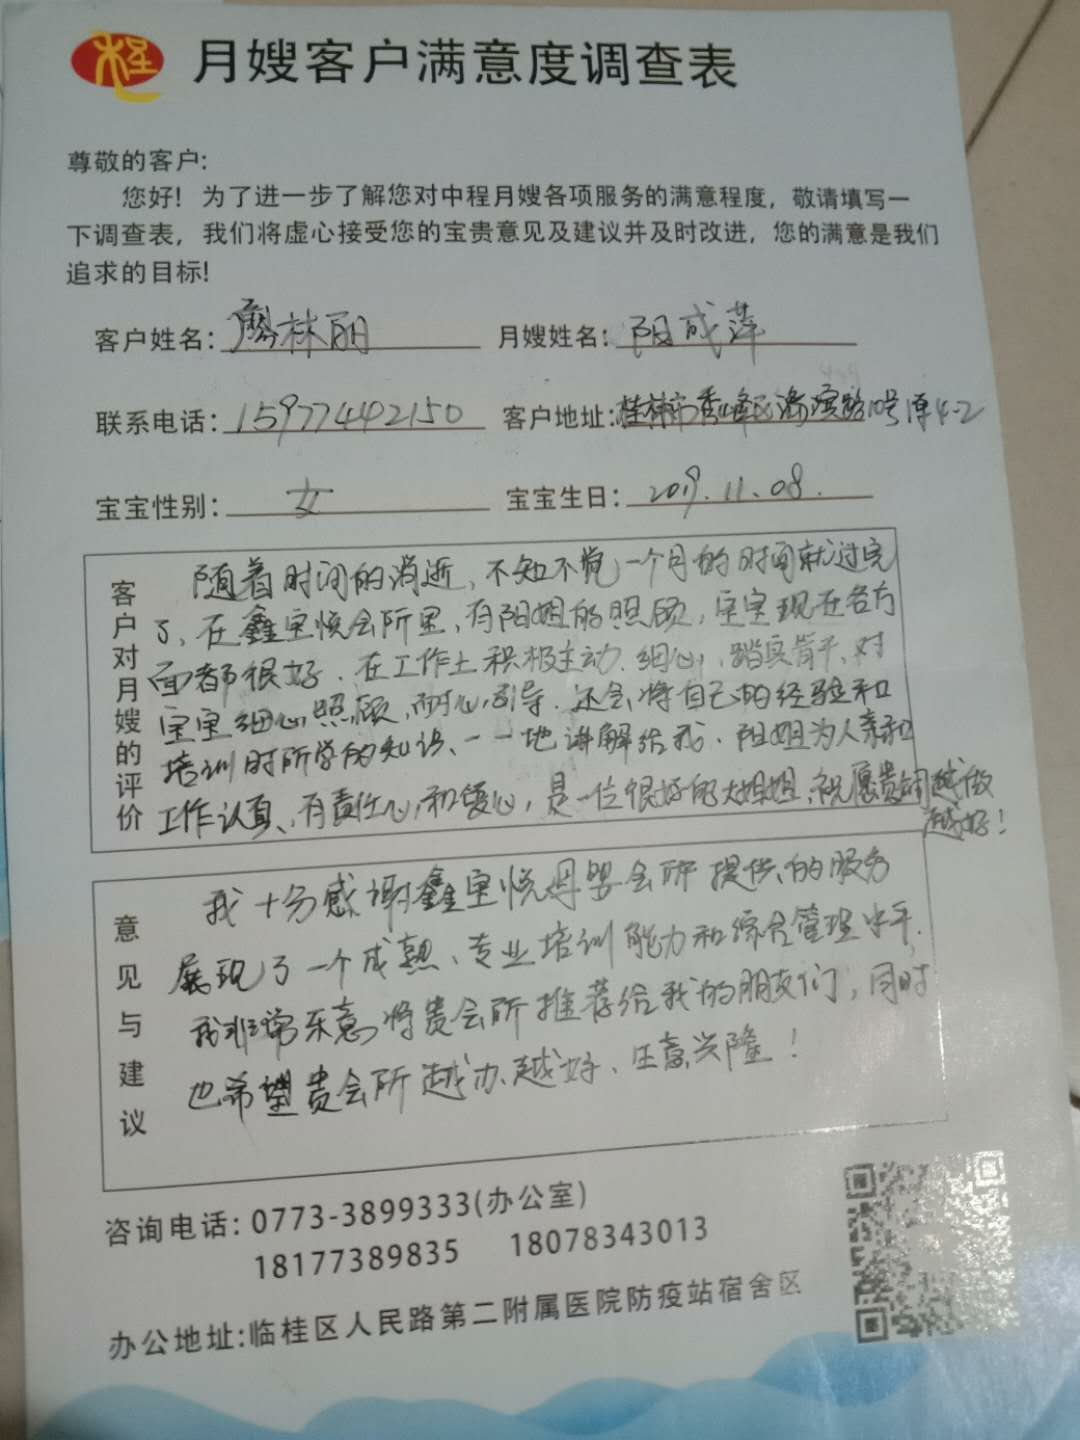 程
月嫂客户满意度调查表
尊敬的客户:
您好！为了进一步了解您对中程月嫂各项服务的满意程度，敬请填写一
下调查表，我们将虚心接受您的宝贵意见及建议并及时改进，您的满意是我们
追求的目标!
客户姓名: 廖林丽 月嫂姓名: 阳成萍
联系电话: 15977442150 客户地址: 桂林市秀峰区 路10号 4-2
宝宝性别: 女 宝宝生日: 2019.11.08.
客户对月嫂的评价
随着时间的消逝，不知不觉一个月的时间就过完
了、在鑫宝悦会所里、有阳姐的照顾，宝宝现在各方
面都很好．在工作上积极主动．细心，踏实肯干、对
宝宝细心照顾，耐心引导．还会将自己的经验和
培训时所学的知识、一一地讲解给我．阳姐为人亲和
工作认真、有责任心，和爱心，是一位很好的大姐姐，祝愿贵 越做
越好！
意见与建议
我十分感谢鑫宝悦母婴会所提供的服务
展现了一个成熟、专业培训能力和综合管理水平．
我非常乐意将贵会所推荐给我的朋友们，同时
也希望贵会所越办越好、生意兴隆！
咨询电话: 0773-3899333(办公室)
18177389835 18078343013
办公地址:临桂区人民路第二附属医院防疫站宿舍区